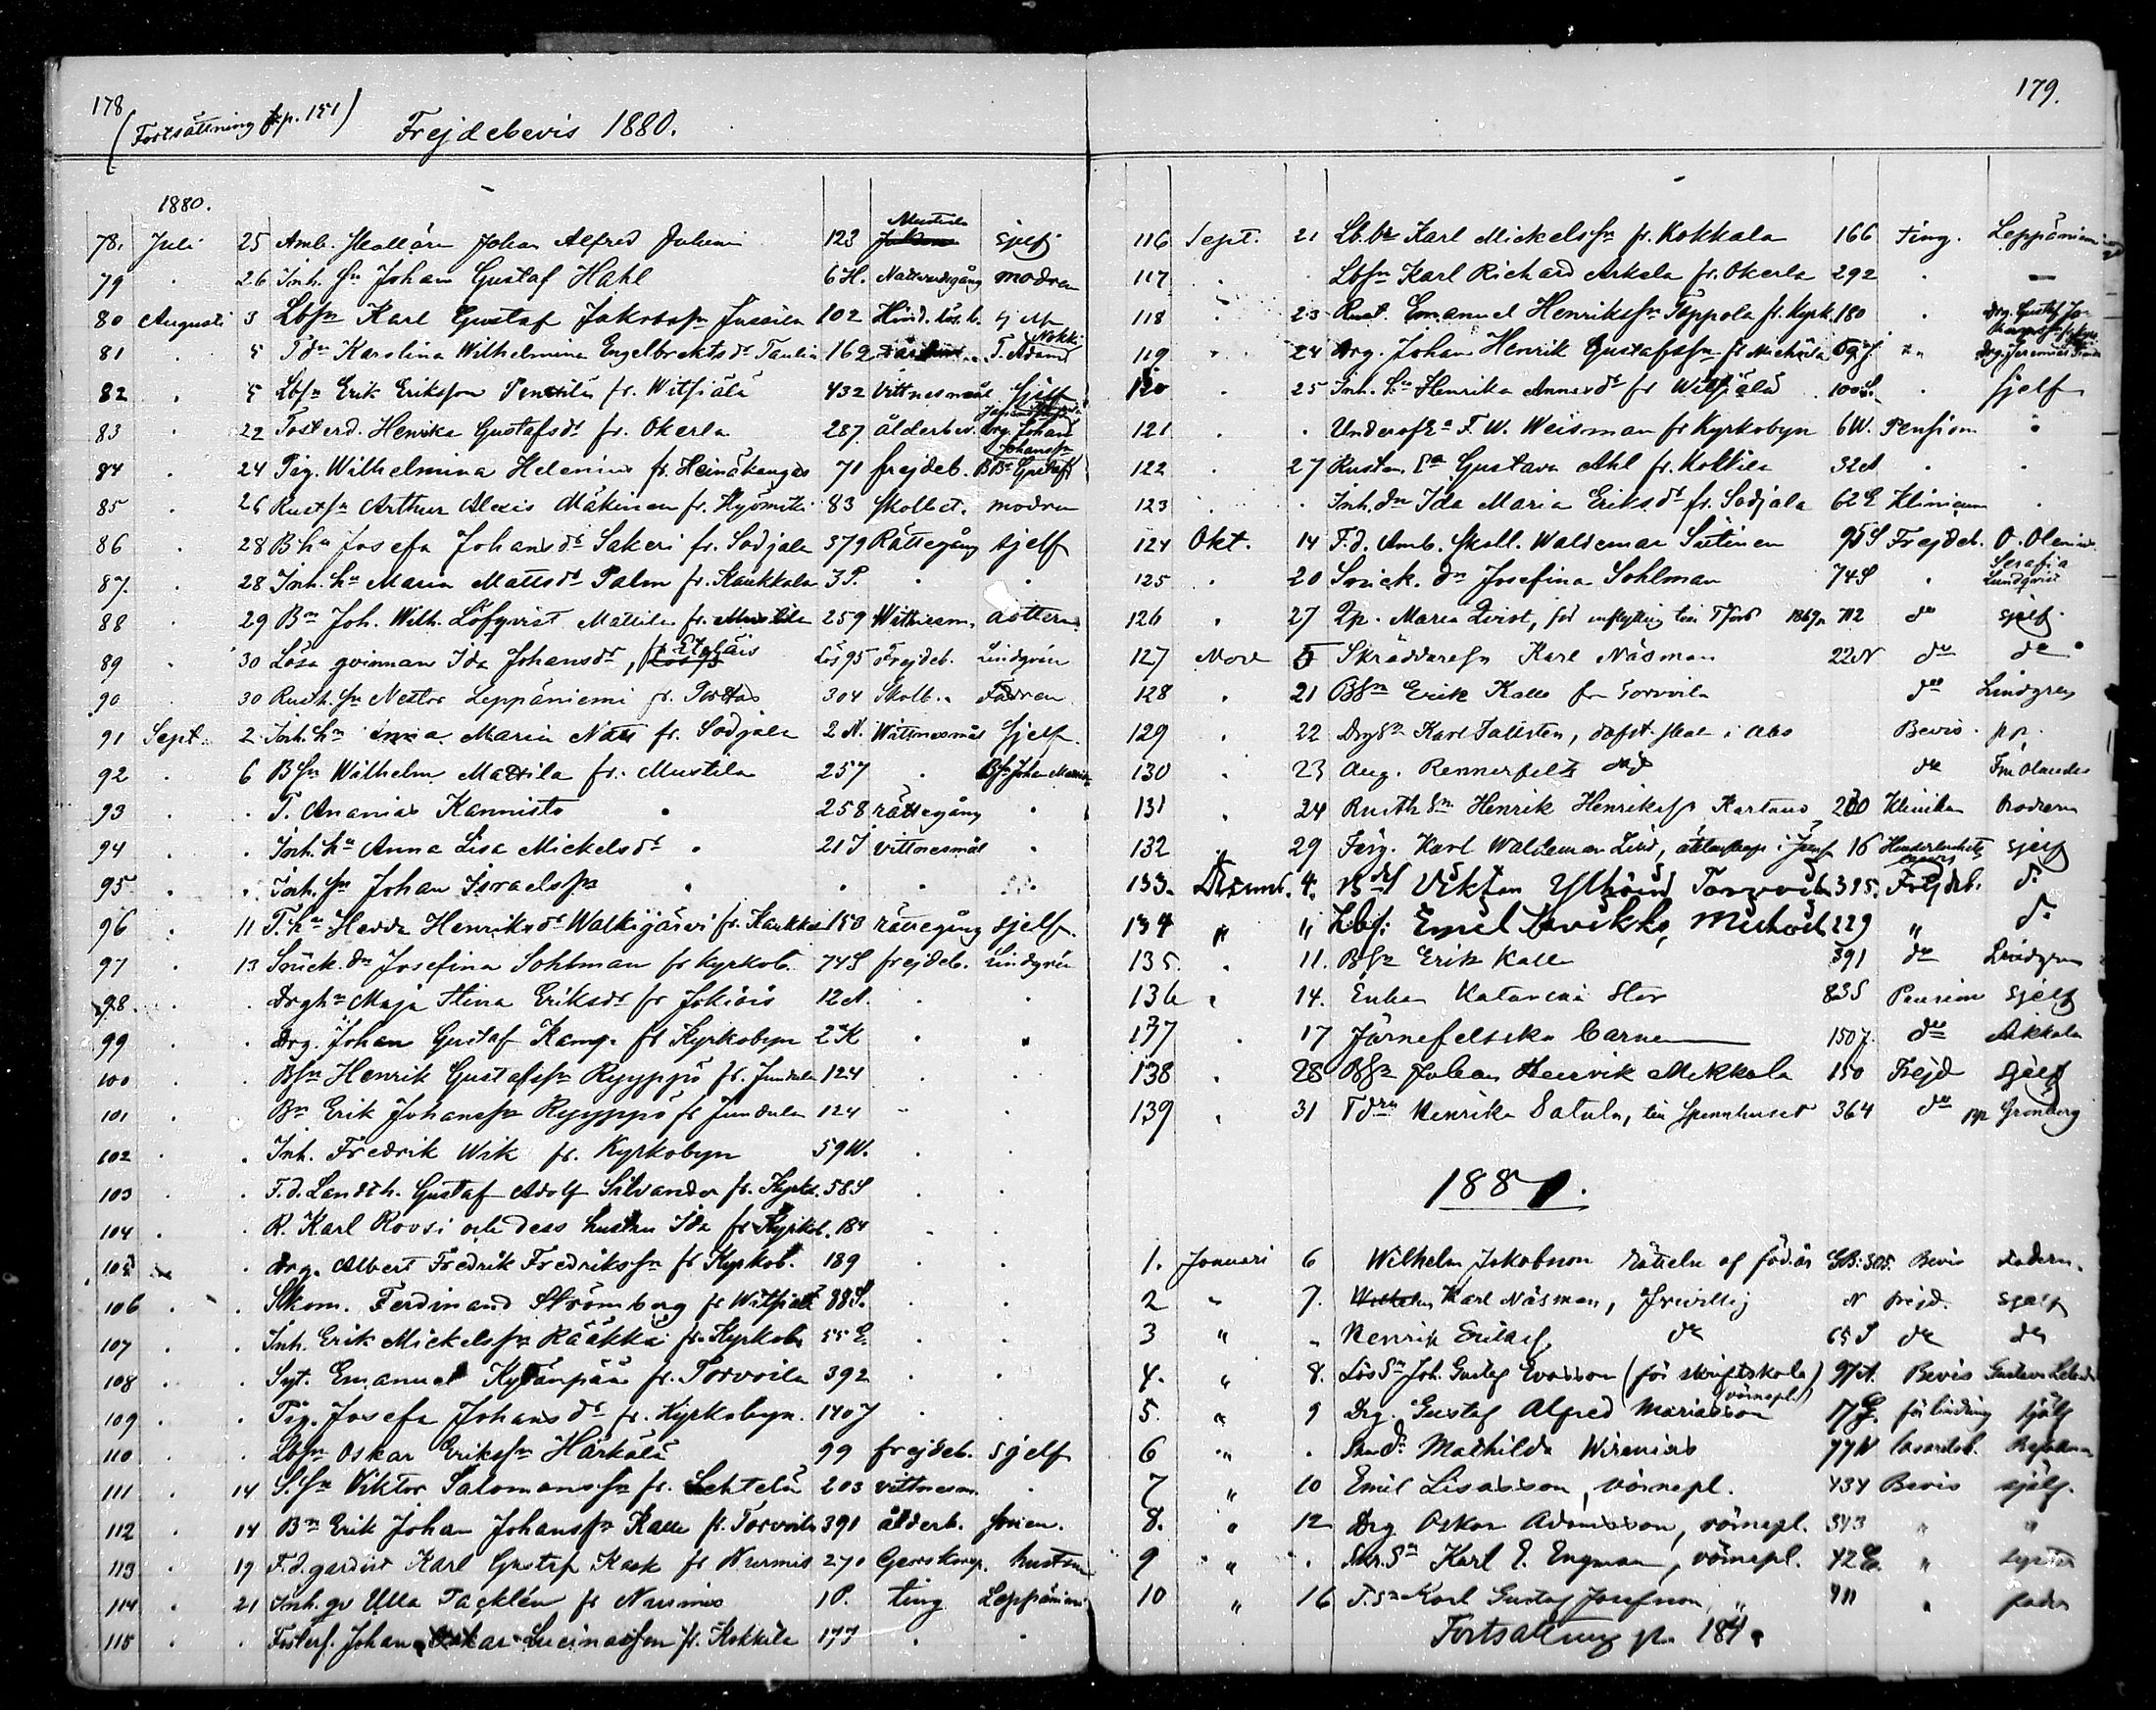 178
(Fortsättning fr. p. 151)
Frejdebevis 1880.
1880.
78. Juli 25 Amb. Skollär. Johan Alfred Juhein 123 Mustila sjelf
79 . 26 Inh. sn Johan Gustaf Hahl 6 H. Nattvardsgång modren
80 Augusti 3 Lbsn Karl Gustaf Jakobssn Jussila 102 Hind.lös.b. sjelf
81 . 5 Tdr Karolina Wilhelmina Engelbrektsdr 162 T. Adam Nokki
82 . 5 Lbsn Erik Eriksson Penttilä fr. Witsiälä 432 Vittnesmål sjelf
83 . 22 Fosterd. Henrika Gustafsdr fr. Okerla 287 ålderbev. Drg. Johan
84 . 24 Pig. Wilhelmina Helenius fr. Heinäkangas 71 frejdeb. Bbr Gustaf Johanssn
85 . 26 Rustsn Arthur Alexis Mäkinen fr. Hyömäki 83 Skolbet. modren
86 . 28 Bha Josefa Johansdr Sakeri fr. Sodjala 379 Rättegång sjelf
87. . 28 Inh. ha Maria Mattsdr Palm fr. Kaukkala 3 P. . .
88 . 29 Bn Joh. Wilh. Löfqvist Mattila fr. Mustila 259 Wittnesm. dottern
89 . 30 Lösa qvinnan Ida Johansdr, Lös 95 Frejdeb. Lindgrén
90 . 30 Rusth. sn Nestor Leppäniemi fr. Portas 304 Skolb. Fadren
91 Sept. 2 Inh. ha Maria Nätt fr. Sodjala 2 N. Wittnesmål sjelf.
92 . 6 Bsn Wilhelm Mattila fr. Mustila 257 . Bsn Johan Mattila
93 . . T. Ananias Kannisto . 258 rättegång .
94 . . Inh. ha Anna Lisa Mickelsdr . 21 J vittnesmål .
95 . . Inh. sn Johan Israelssn . . . .
96 . 11 T. ha Hedda Henriksdr Walkijärvi fr. Kaukkala 150 rättegång sjelf.
97 . 13 Snick. dr Josefina Sohlman fr Kyrkob. 74 S frejdeb. Lindgrén
98. . . Drgha Maja Stina Eriksdr fr Jokiois 12 A. . .
99 . . Drg. Johan Gustaf Kamp fr Kyrkobyn 2 K . .
100 . . Bsn Henrik Gustafssn Ryyppö fr. Jundala 124 . .
101 . . Bn Erik Johanssn Ryyppö fr Jundala 124 . .
102 . . Inh. Fredrik Wik fr. Kyrkobyn 59 W. . .
103 . . F.d. Landth. Gustaf Adolf Silvander fr. Kyrko. 58 S . .
104 . . R. Karl Rovsi och dess hustru Ida fr Kyrkob. 184 . .
105 . . Drg. Albert Fredrik Fredrikssn fr Kyrkob. 189 . .
106 . . Skom. Ferdinand Strömberg fr Witsiälä 88 S. . .
107 . . Inh. Erik Mickelssn Rääkkä fr. Kyrkob 55 E. . .
108 . . Syt. Emanuel Kylänpää fr. Torvoila 392 . .
109 . . Pig. Josefa Johansdr fr. Kyrkobyn. 140 J . .
110 . . Lbsn Oskar Erikssn Härkälä 99 frejdeb. sjelf
111 . 14 S. sn Viktor Salomonssn fr. 203 vittnesm. .
112 . 14 Bn Erik Johan Johanssn Kalle fr. Torvoila 391 ålderb.
113 . 19 F.d. gardist Karl Gustaf Kask fr Nurmis 270 hustrun
114 . 21 Inh. qv Ulla Packlén fr Nurmis 1 P. ting Leppäniemi
115 . . Fosters. Johan Oskar Lucinasson fr. Kokkila 177 . .
179.
116 Sept. 21 Lb. br Karl Mickelssn fr. Kokkala 166 Ting. Leppäniemi
117 . . Lbsn Karl Richard Arkela fr. Okerla 292 . —
118 . 23 Rust. Emanuel Henrikssn Toppola fr. Kyrk. 180 . Drg. Gustaf
119 . 24 Drg. Johan Henrik Gustafssn fr Michäila 59 J. Drg. Jeremias
120 . 25 Inh. Henrika Annasdr fr Witsiälä 100 S. . sjelf
121 . . Underof. F. W. Weisman fr Kyrkobyn 6 W. Pension .
122 . 27 Gustava Ahl fr. Kokkila 32 A . .
123 . . Inh. dr Ida Maria Eriksdr fr. Sodjala 62 E Klinicum .
124 Okt. 14 F.d. Amb. Skoll. Waldemar Sutinen 95 S Frejdeb. O. Olenius
125 . 20 Snick. dr Josefina Sohlman 74 S . Serafia Lundqvist
126 . 27 Qp. Maria Qvist, 712 do sjelf.
127 Nov 5 Skräddaresn Karl Näsman 22 N do do
128 . 21 Bsn Erik Kalle fr. Torvoila do Lindgren
129 . 22 Karl Sallsten, i Åbo Bevis. pr.
130 . 23 Aug. Rennerfelt do do
131 . 24 Rusth sn Henrik Henrikssn Kartano 230 Kliniken
132 . 29 Färg. Karl Waldemar Lind, 16 Hinderlöshets bevis sjelf
133. Decemb. 4. Viktor Torvoila 395. Frejdeb. d.
134 „ „ Lbs: Emil 229 „ d.
135. . 11. Bsn Erik Kalle 391 do Lindgren
136 . 14. Enkan Katarina Stor 83 S Pension sjelf
137 . 17 Järnefeltska barnen 150 J. do Akkala
138 . 28 Bsn Johan Henrik Mikkola 150 Frejd sjelf
139 . 31 Tdrn Henrika Satula, till Spinnhuset 364 do pp Grönberg
1881.
1. Januari 6 Wilhelm Jakobsson rättelse af föd.år GB: 305. Bevis Fadern.
2 „ 7. Karl Näsman, frivillig N frejd. sjelf
3 „ „ Henrik Erikss. do 65 S do do
4. „ 8. Lös sn Joh. Gustaf Evasson (för skriftskola) 97 A. Bevis Gustava
5. „ 9 Drg. Gustaf Alfred Mariasson värnepl. 17 G. för lindring sjelf
6 „ . Mathilda Wirenius 77 W lasarettsb.
7 „ 10 Emil Lisasson, värnepl. 434 Bevis sjelf.
8. „ 12 Drg Oskar Adamsson, värnepl. 343 „ „
9 „ . Skr. sn Karl E. Engman, värnepl. 42 E. „ syster
10 „ 16 T. sn Karl Gustaf Josefsson, „ 411 „ fader
Fortsättning p. 184.